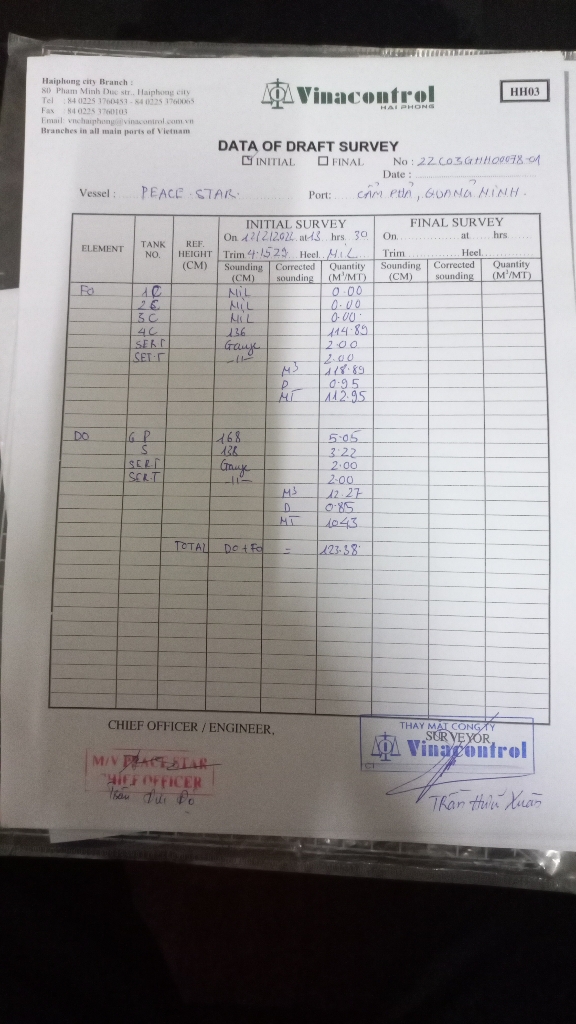 Haiphong city Branch :
80 Pham Minh Duc str., Haiphong city
Tel : 84 0225 3760453 - 84 0225 3760065
Fax 84 0225 3760103
Email: vnchaiphong@vinacontrol.com.vn
Branches in all main ports of Vietnam
Vinacontrol
HAI PHONG
HH03
DATA OF DRAFT SURVEY
☑ INITIAL ☐ FINAL No :
Date :
Vessel : PEACE STAR Port: CẨM PHẢ, QUẢNG NINH.
ELEMENT TANK NO. REF. HEIGHT (CM) INITIAL SURVEY FINAL SURVEY
On at 13 hrs 30 On at hrs
Trim 4.1529 Heel NiL Trim Heel
Sounding (CM) Corrected sounding Quantity (M³/MT) Sounding (CM) Corrected sounding Quantity (M³/MT)
FO 1C NiL 0.00
2C NiL 0.00
3C NiL 0.00
4C 136 114.89
SERT Gauge 2.00
SET.T -11- 2.00
M3 118.89
D 0.95
MT 112.95
DO 6 P 168 5.05
S 138 3.22
SERT Gauge 2.00
SER.T -11- 2.00
M3 12.27
D 0.85
MT 1043
TOTAL DO + FO = 123.38
CHIEF OFFICER / ENGINEER,
THAY MẶT CÔNG TY
SURVEYOR,
Vinacontrol
M/V PEACE STAR
CHIEF OFFICER
Trần Hữu Xuân